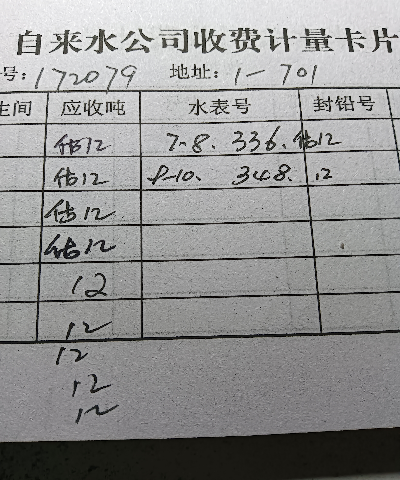 自来水公司收费计量卡片
号: 172079 地址: 1-701
生间 应收吨 水表号 封铅号
估12 7-8. 336. 估12
估12 9-10. 348. 12
估12
估12
12
12
12
12
12